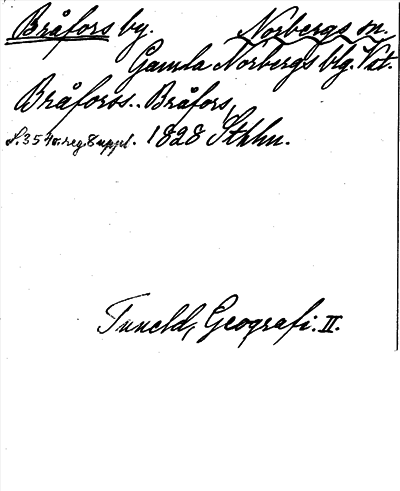 Bråfors by. Norbergs sn.
Gamla Norbergs blg. Vstm.
Bråforss. Bråfors,
S. 354 o. reg. 8 uppl. 1828 Sthlm.
Tuneld, Geografi. II.